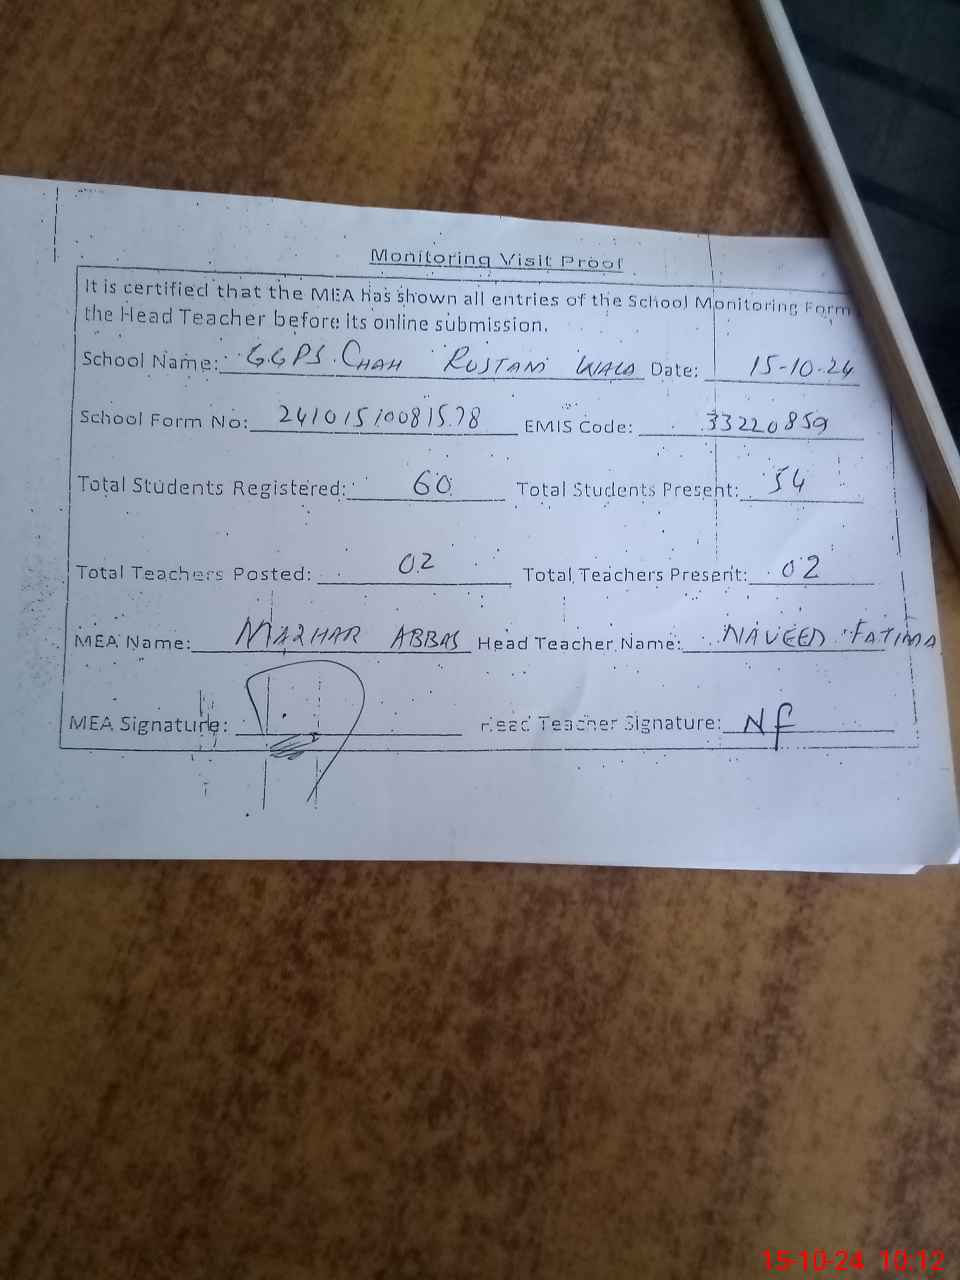 Monitoring Visit Proof
It is certified that the MEA has shown all entries of the School Monitoring Form
the Head Teacher before its online submission.
School Name: GGPS CHAH RUSTAM WALA Date: 15-10-24
School Form No: 24101510081578 EMIS Code: 33220859
Total Students Registered: 60 Total Students Present: 54
Total Teachers Posted: 02 Total Teachers Present: 02
MEA Name: MAZHAR ABBAS Head Teacher Name: NAVEED FATIMA
MEA Signature: Head Teacher Signature: NF
15-10-24 10:12